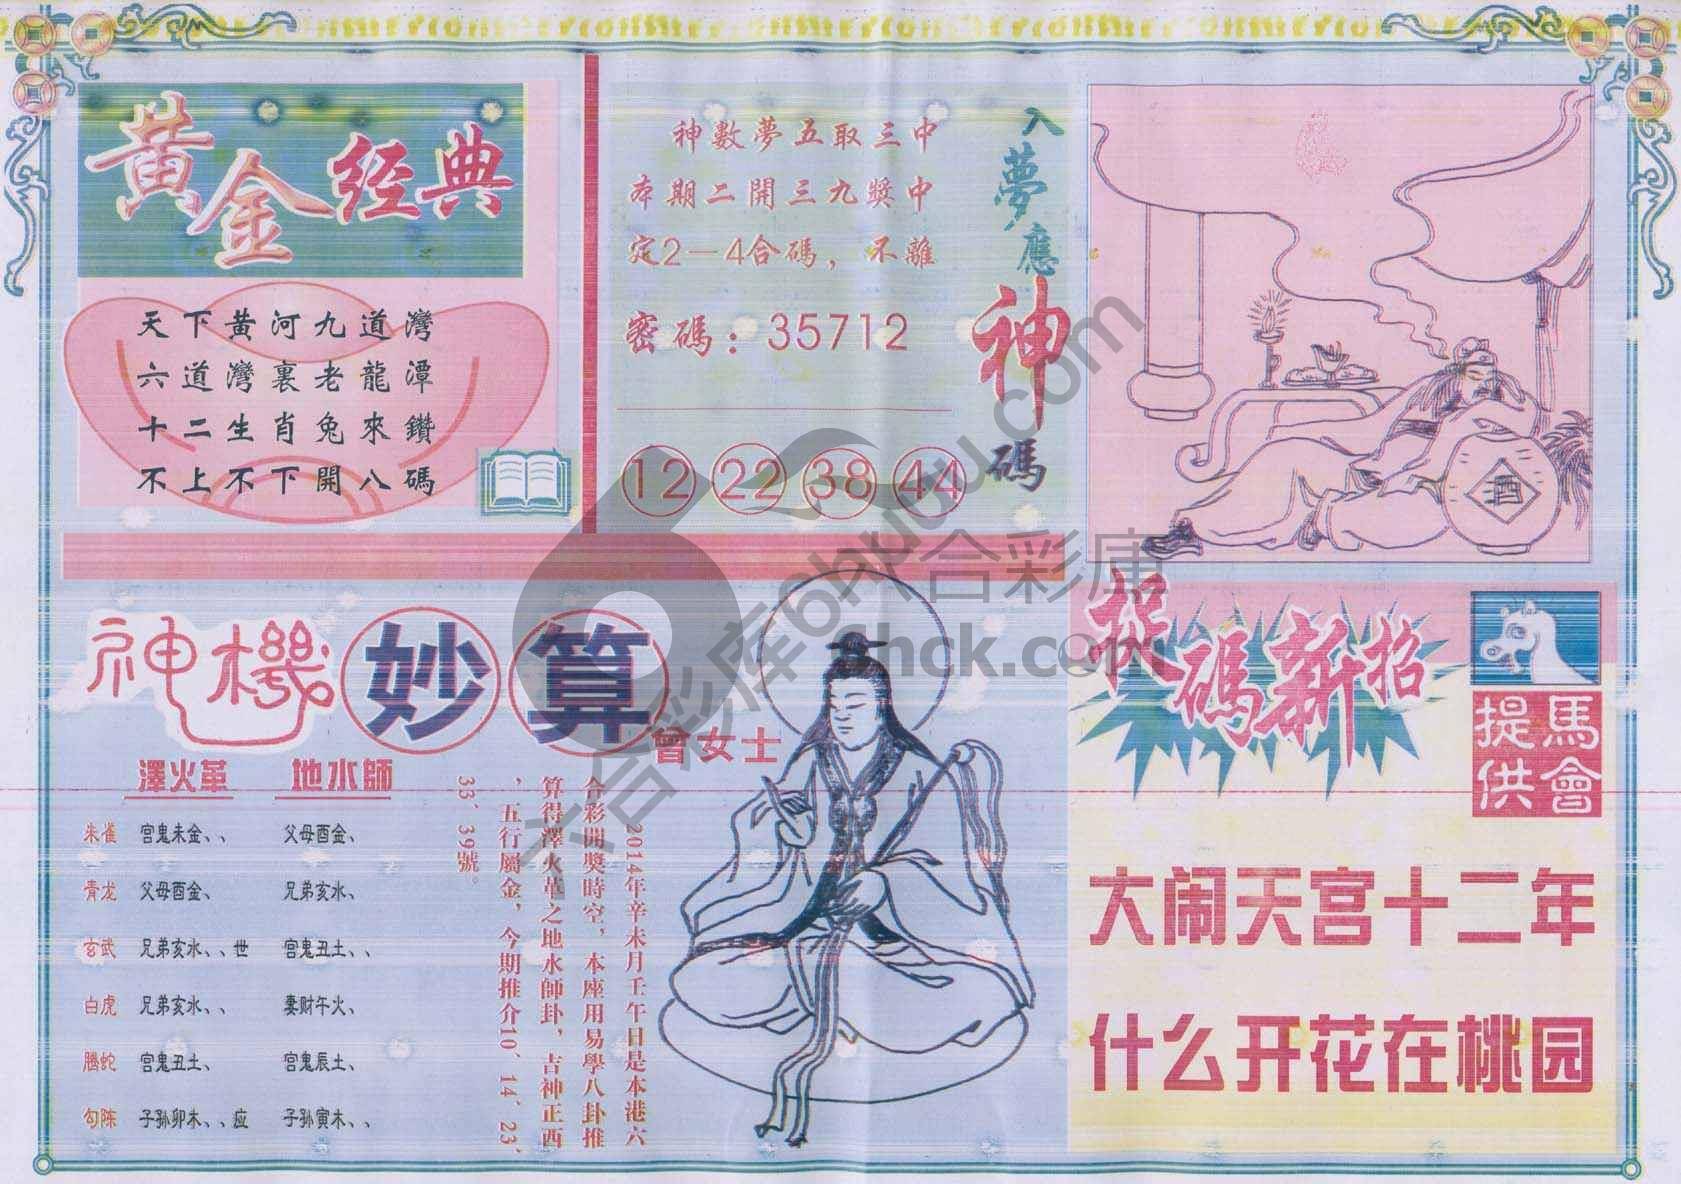 黄金经典
天下黄河九道灣
六道灣裏老龍潭
十二生肖兔來鑽
不上不下開八碼
神數夢五取三中
本期二開三九獎中
定2—4合碼，不離
密碼：35712
12 22 38 44
入夢應神碼
酒
神機妙算
曾女士
澤火革 地水師
朱雀 宫鬼未金、、 父母酉金、
青龙 父母酉金、 兄弟亥水、
玄武 兄弟亥水、、世 宫鬼丑土、、
白虎 兄弟亥水、、 妻财午火、
腾蛇 宫鬼丑土、 宫鬼辰土、
勾陈 子孙卯木、、应 子孙寅木、、
2014年辛未月壬午日是本港六
合彩開獎時空，本座用易學八卦推
算得澤火革之地水師卦，吉神正西
，五行屬金，今期推介10、14、23、
33、39號。
捉碼新招
馬會
提供
大闹天宫十二年
什么开花在桃园
六合彩库6hbutu.com
六合彩庫
6hck.com